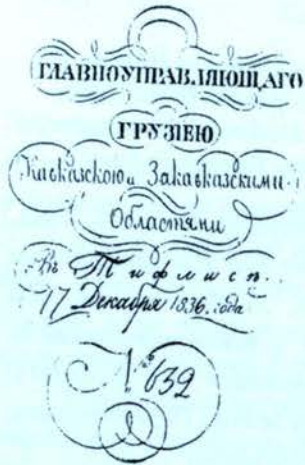 ГЛАВНОУПРАВЛЯЮЩАГО
ГРУЗІЕЮ
Кавказскою и Закавказскими
Областями
Въ Тифлисѣ.
17 Декабря 1836. года
№ 632